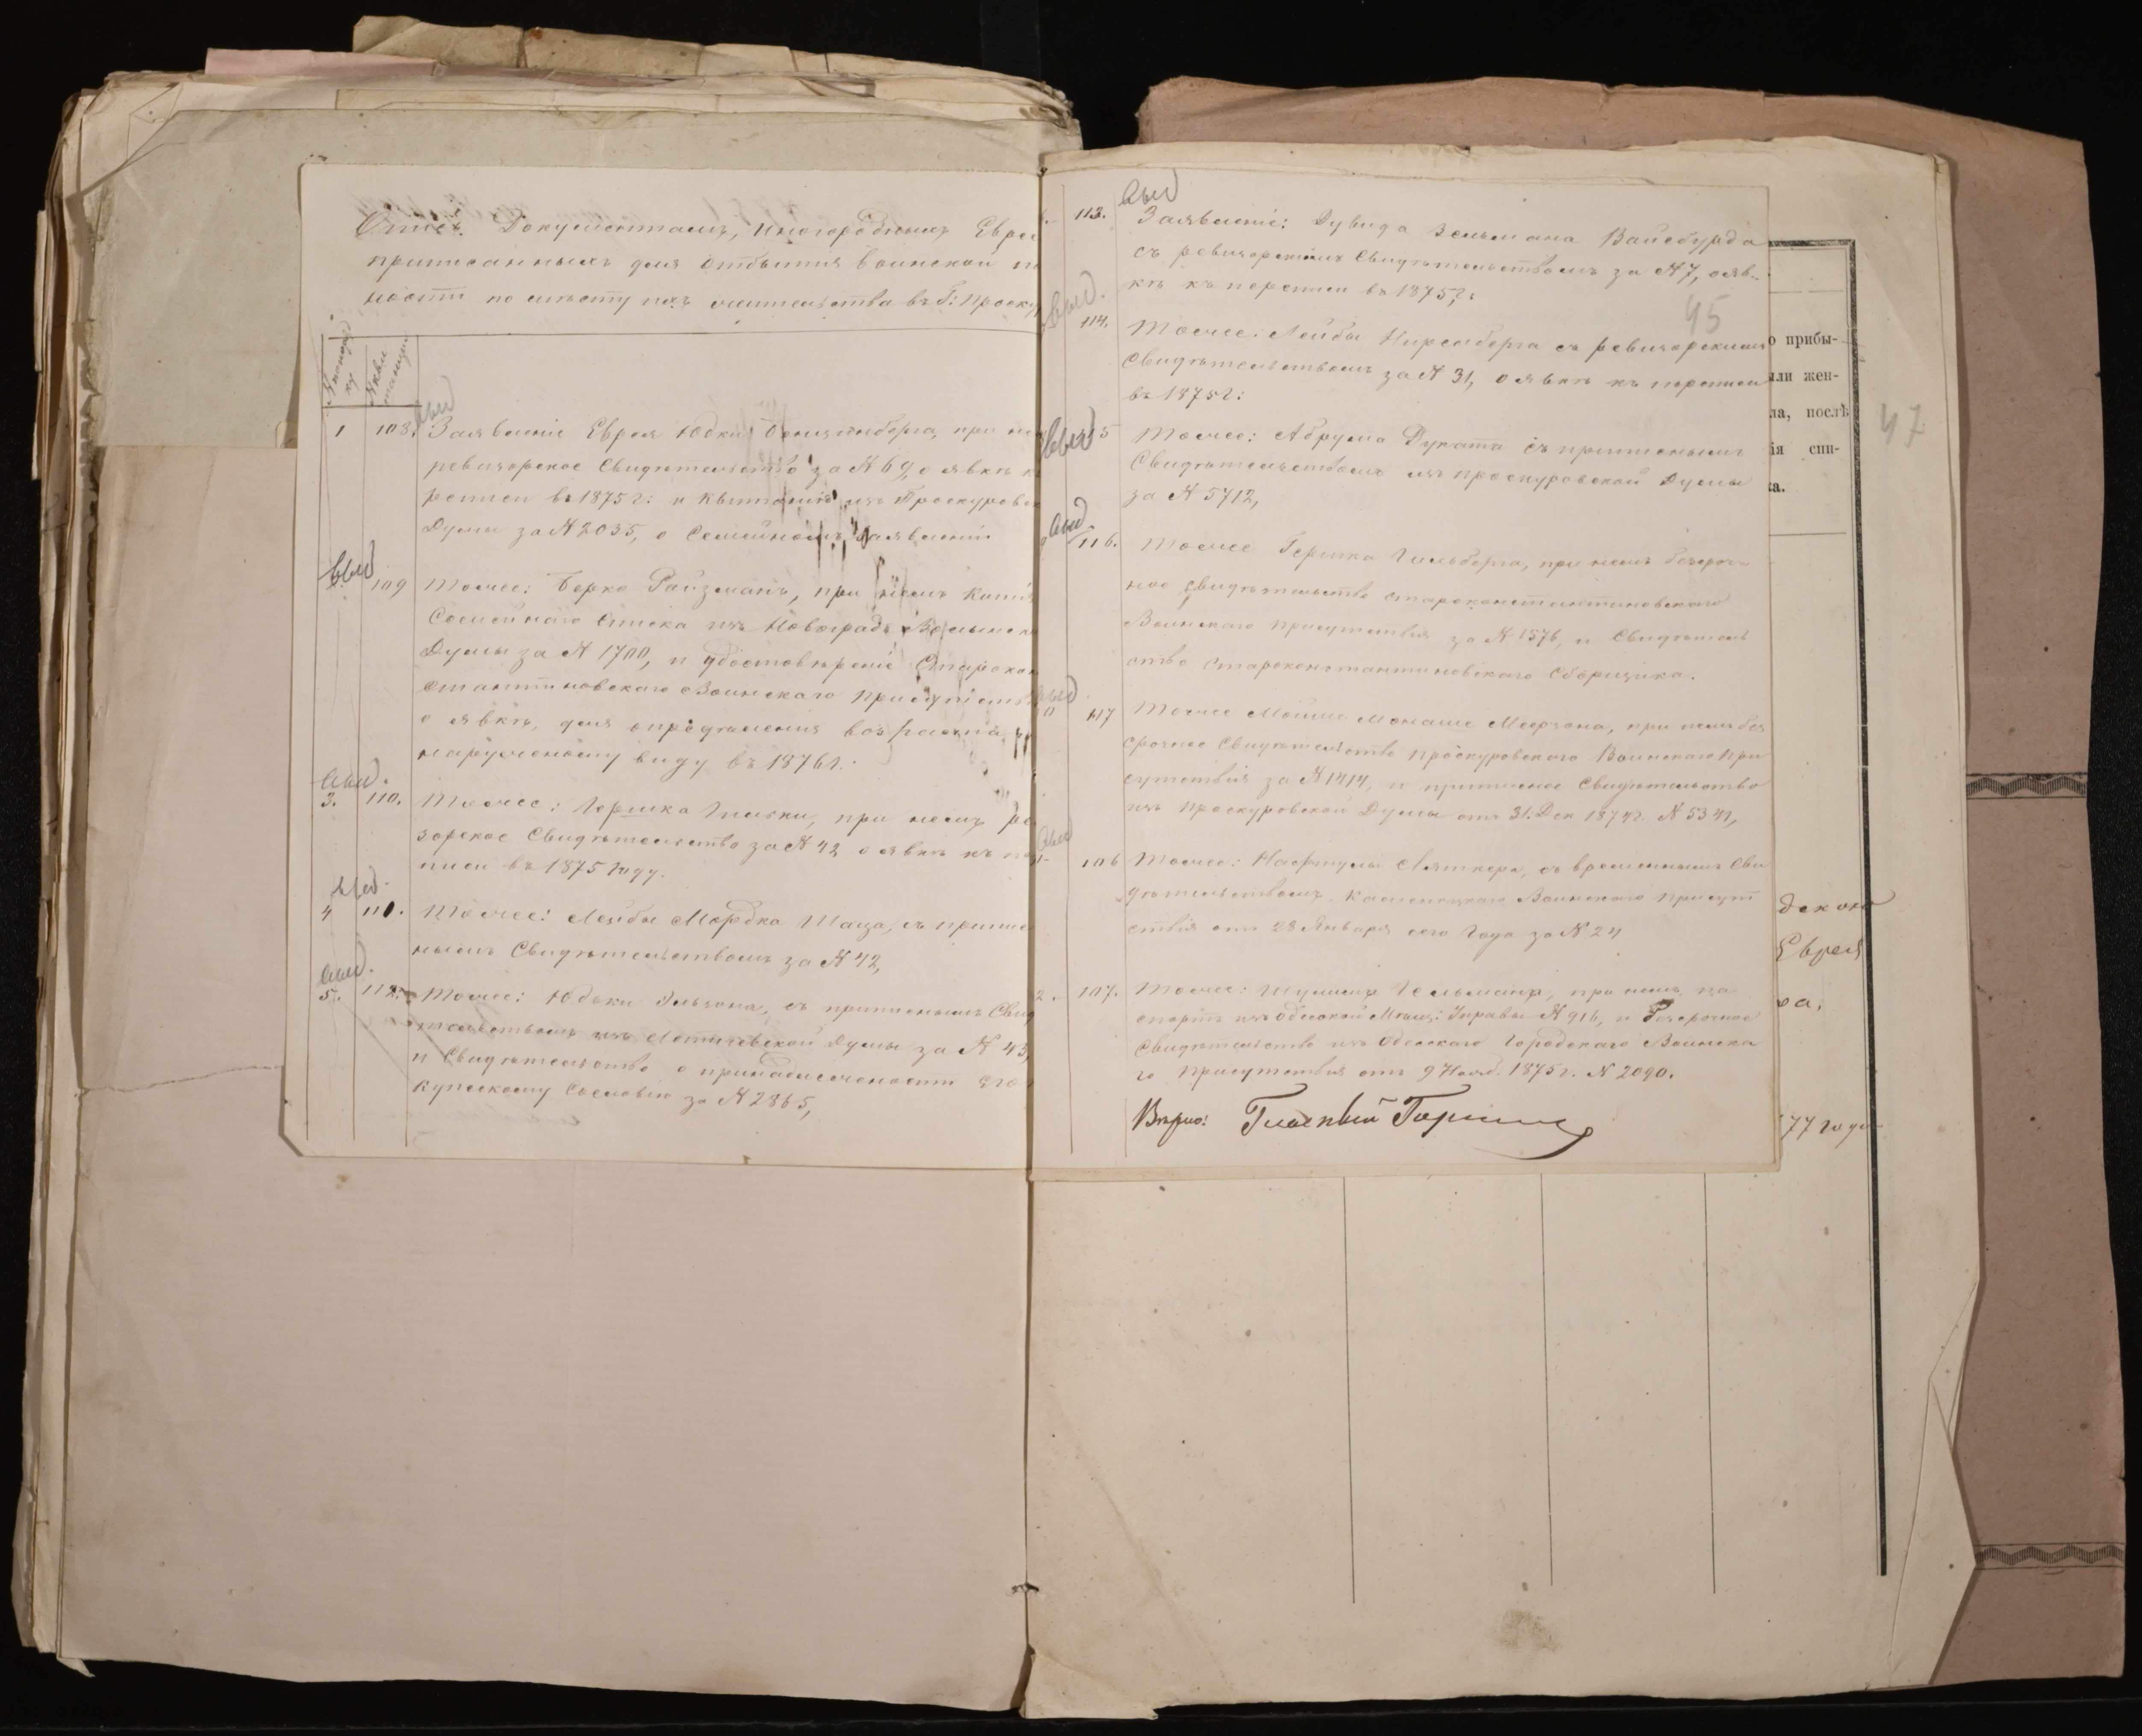 Опись Документамъ, иногородныхъ Евре
приписанныхъ для отбытия воинской по
ности по месту ихъ жительства въ Г: Проску
№ по поряд
ку
№ кви
танции
выд
1 108. Заявленіе Еврея Юдки при не
ревизорское Свидѣтельство за № 69, о явкѣ к
реписи въ 1875 г: и Квитанція изъ Проскуровск
Думы за № 2035, о Семейномъ заявленіи
выд
109 Тоже: Берко Райзманъ, при нёмъ Копія
Семейнаго Списка изъ Новоградъ Волынско
Думы за № 1700, и удостовѣреніе Старокон
стантиновскаго Воинскаго присутств
о явкѣ, для опредѣленія возраста
наружному виду въ 1876 г.
выд.
3. 110. Тоже: Гершка при немъ ре
зорское Свидѣтельство за № 42 о явкѣ къ пе
писи въ 1875 году.
выд.
4 111. Тоже: Лейбы Мордка Шаца, съ припис
нымъ Свидѣтельствомъ за № 42,
выд.
5. 112. Тоже: Юдьки съ приписнымъ Свид
тельствомъ изъ Летичевской Думы за № 43,
и Свидѣтельство о принадлежности его
купескому Сословію за № 2865,
выд
113. Заявленіе: Дувида Зельмана Вайсбурда
съ ревизорскимъ Свидѣтельствомъ за № 7, о яв-
кѣ къ переписи въ 1875 г:
45
выд.
114. Тоже. Лейбы Ниренберга съ ревизорскимъ
Свидѣтельствомъ за № 31, о явкѣ къ переписи
въ 1875 г:
выд
115 Тоже: Абрума Дуката съ приписнымъ
Свидѣтельствомъ изъ Проскуровской Думы
за № 5712,
выд.
116. Тоже Гершка Гольберга, при немъ безсроч-
ное свидѣтельство староконстантиновскаго
Воинскаго присутствія за № 1576, и Свидѣтель
ство староконстантиновскаго Сборщика.
выд
117 Тоже Мойше Монаше Меерзона, при немъ без
срочное Свидѣтельство проскуровскаго Воинскаго При
сутствія за № 1414, и приписное Свидѣтельство
изъ Проскуровской Думы отъ 31. Дек 1874 г. № 5341,
выд
106 Тоже: Нафтулы съ временнымъ Сви
дѣтельствомъ Каменецкаго Воинскаго присут
ствія отъ 28 Января сего года за № 24
107. Тоже: Шулима Гельмана, при немъ па
спортъ изъ Одесской Мѣщ: Управы № 916, и безсрочное
Свидѣтельство изъ Одесскаго Городскаго Воинска
го присутствія отъ 9 Нояб. 1875 г. № 2090.
Вѣрно: Гласный
о прибы-
или жен-
ла, послѣ
ія спи-
ка.
47
Еврея
ра,
77 года